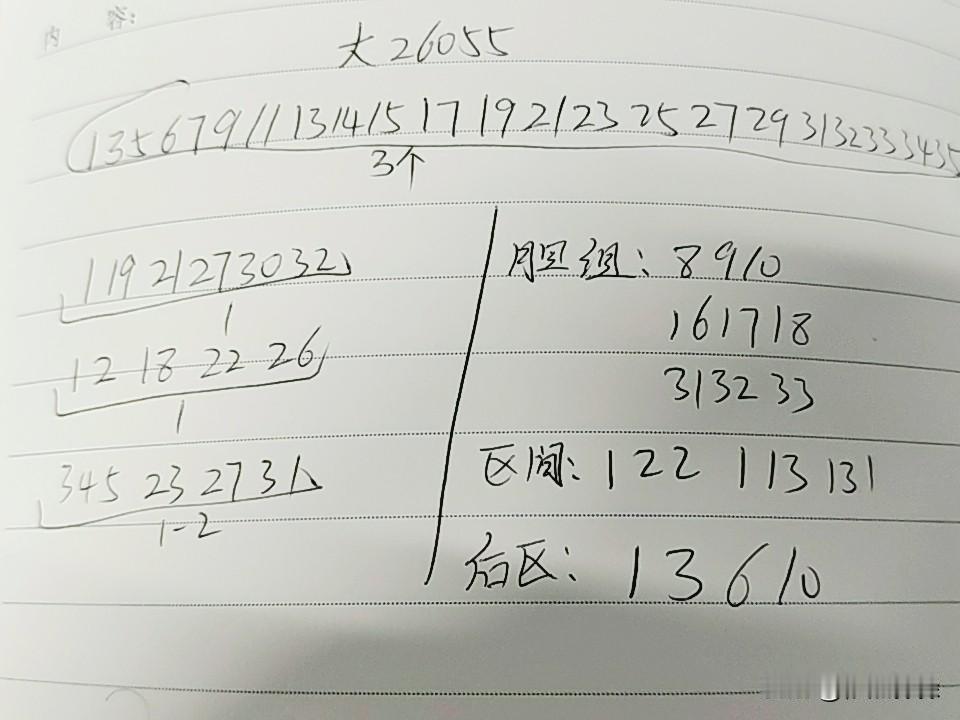 内 容:
大26055
1 3 5 6 7 9 11 13 14 15 17 19 21 23 25 27 29 31 32 33 34 35
3个
1 19 21 27 30 32
1
12 18 22 26
1
3 4 5 23 27 31
1-2
胆组: 8 9 10
16 17 18
31 32 33
区间: 122 113 131
后区: 1 3 6 10